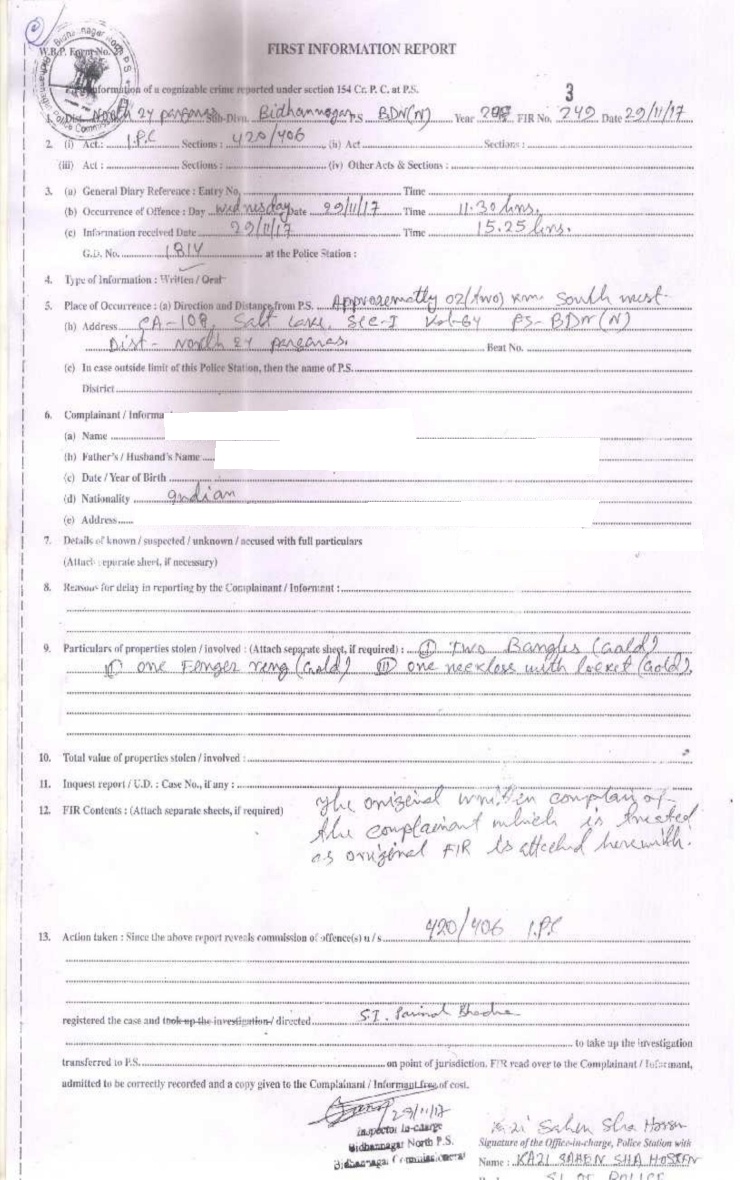 W.B.P. Form No.
FIRST INFORMATION REPORT
First information of a cognizable crime reported under section 154 Cr. P. C. at P.S.
3
1. Dist. North 24 parganas Sub-Divn. Bidhannagar P.S BDN(N) Year FIR No. 249 Date 29/11/17
2. (i) Act.: I.P.C Sections : 420/406 (ii) Act Sections :
(iii) Act : Sections : (iv) Other Acts & Sections :
3. (a) General Diary Reference : Entry No, Time
(b) Occurrence of Offence : Day Wednesday Date 29/11/17 Time 11.30 hrs.
(c) Information received Date 29/11/17 Time 15.25 hrs.
G.D. No. 1814 at the Police Station :
4. Type of Information : Written / Oral
5. Place of Occurrence : (a) Direction and Distance from P.S. Approxematly 02(two) km. South west
(b) Address CA-108, Salt Lake, Sec-I Kol-64 PS-BDN(N)
Dist- North 24 parganas. Beat No.
(c) In case outside limit of this Police Station, then the name of P.S.
District
6. Complainant / Informa
(a) Name
(b) Father's / Husband's Name
(c) Date / Year of Birth
(d) Nationality Indian
(e) Address
7. Details of known / suspected / unknown / accused with full particulars
(Attach separate sheet, if necessary)
8. Reasons for delay in reporting by the Complainant / Informant :
9. Particulars of properties stolen / involved : (Attach separate sheet, if required) : (I) Two Bangles (Gold)
(II) one Fenger reng (Gold) (III) one neckless with locket (Gold),
10. Total value of properties stolen / involved :
11. Inquest report / U.D. : Case No., if any :
12. FIR Contents : (Attach separate sheets, if required) The original written complain of
the complainant which is treated
as original FIR is attached herewith.
13. Action taken : Since the above report reveals commission of offence(s) u / s 420/406 I.P.C
registered the case and took up the investigation / directed S.I. Parimal
to take up the investigation
transferred to P.S. on point of jurisdiction. FIR read over to the Complainant / Informant,
admitted to be correctly recorded and a copy given to the Complainant / Informant free of cost.
29/11/17
Inspector In-charge
Bidhannagar North P.S.
Bidhannagar Commissionerat
Kazi Sahen Sha Hossen
Signature of the Office-in-charge, Police Station with
Name : KAZI SAHEN SHA HOSSEN
SI OF POLICE